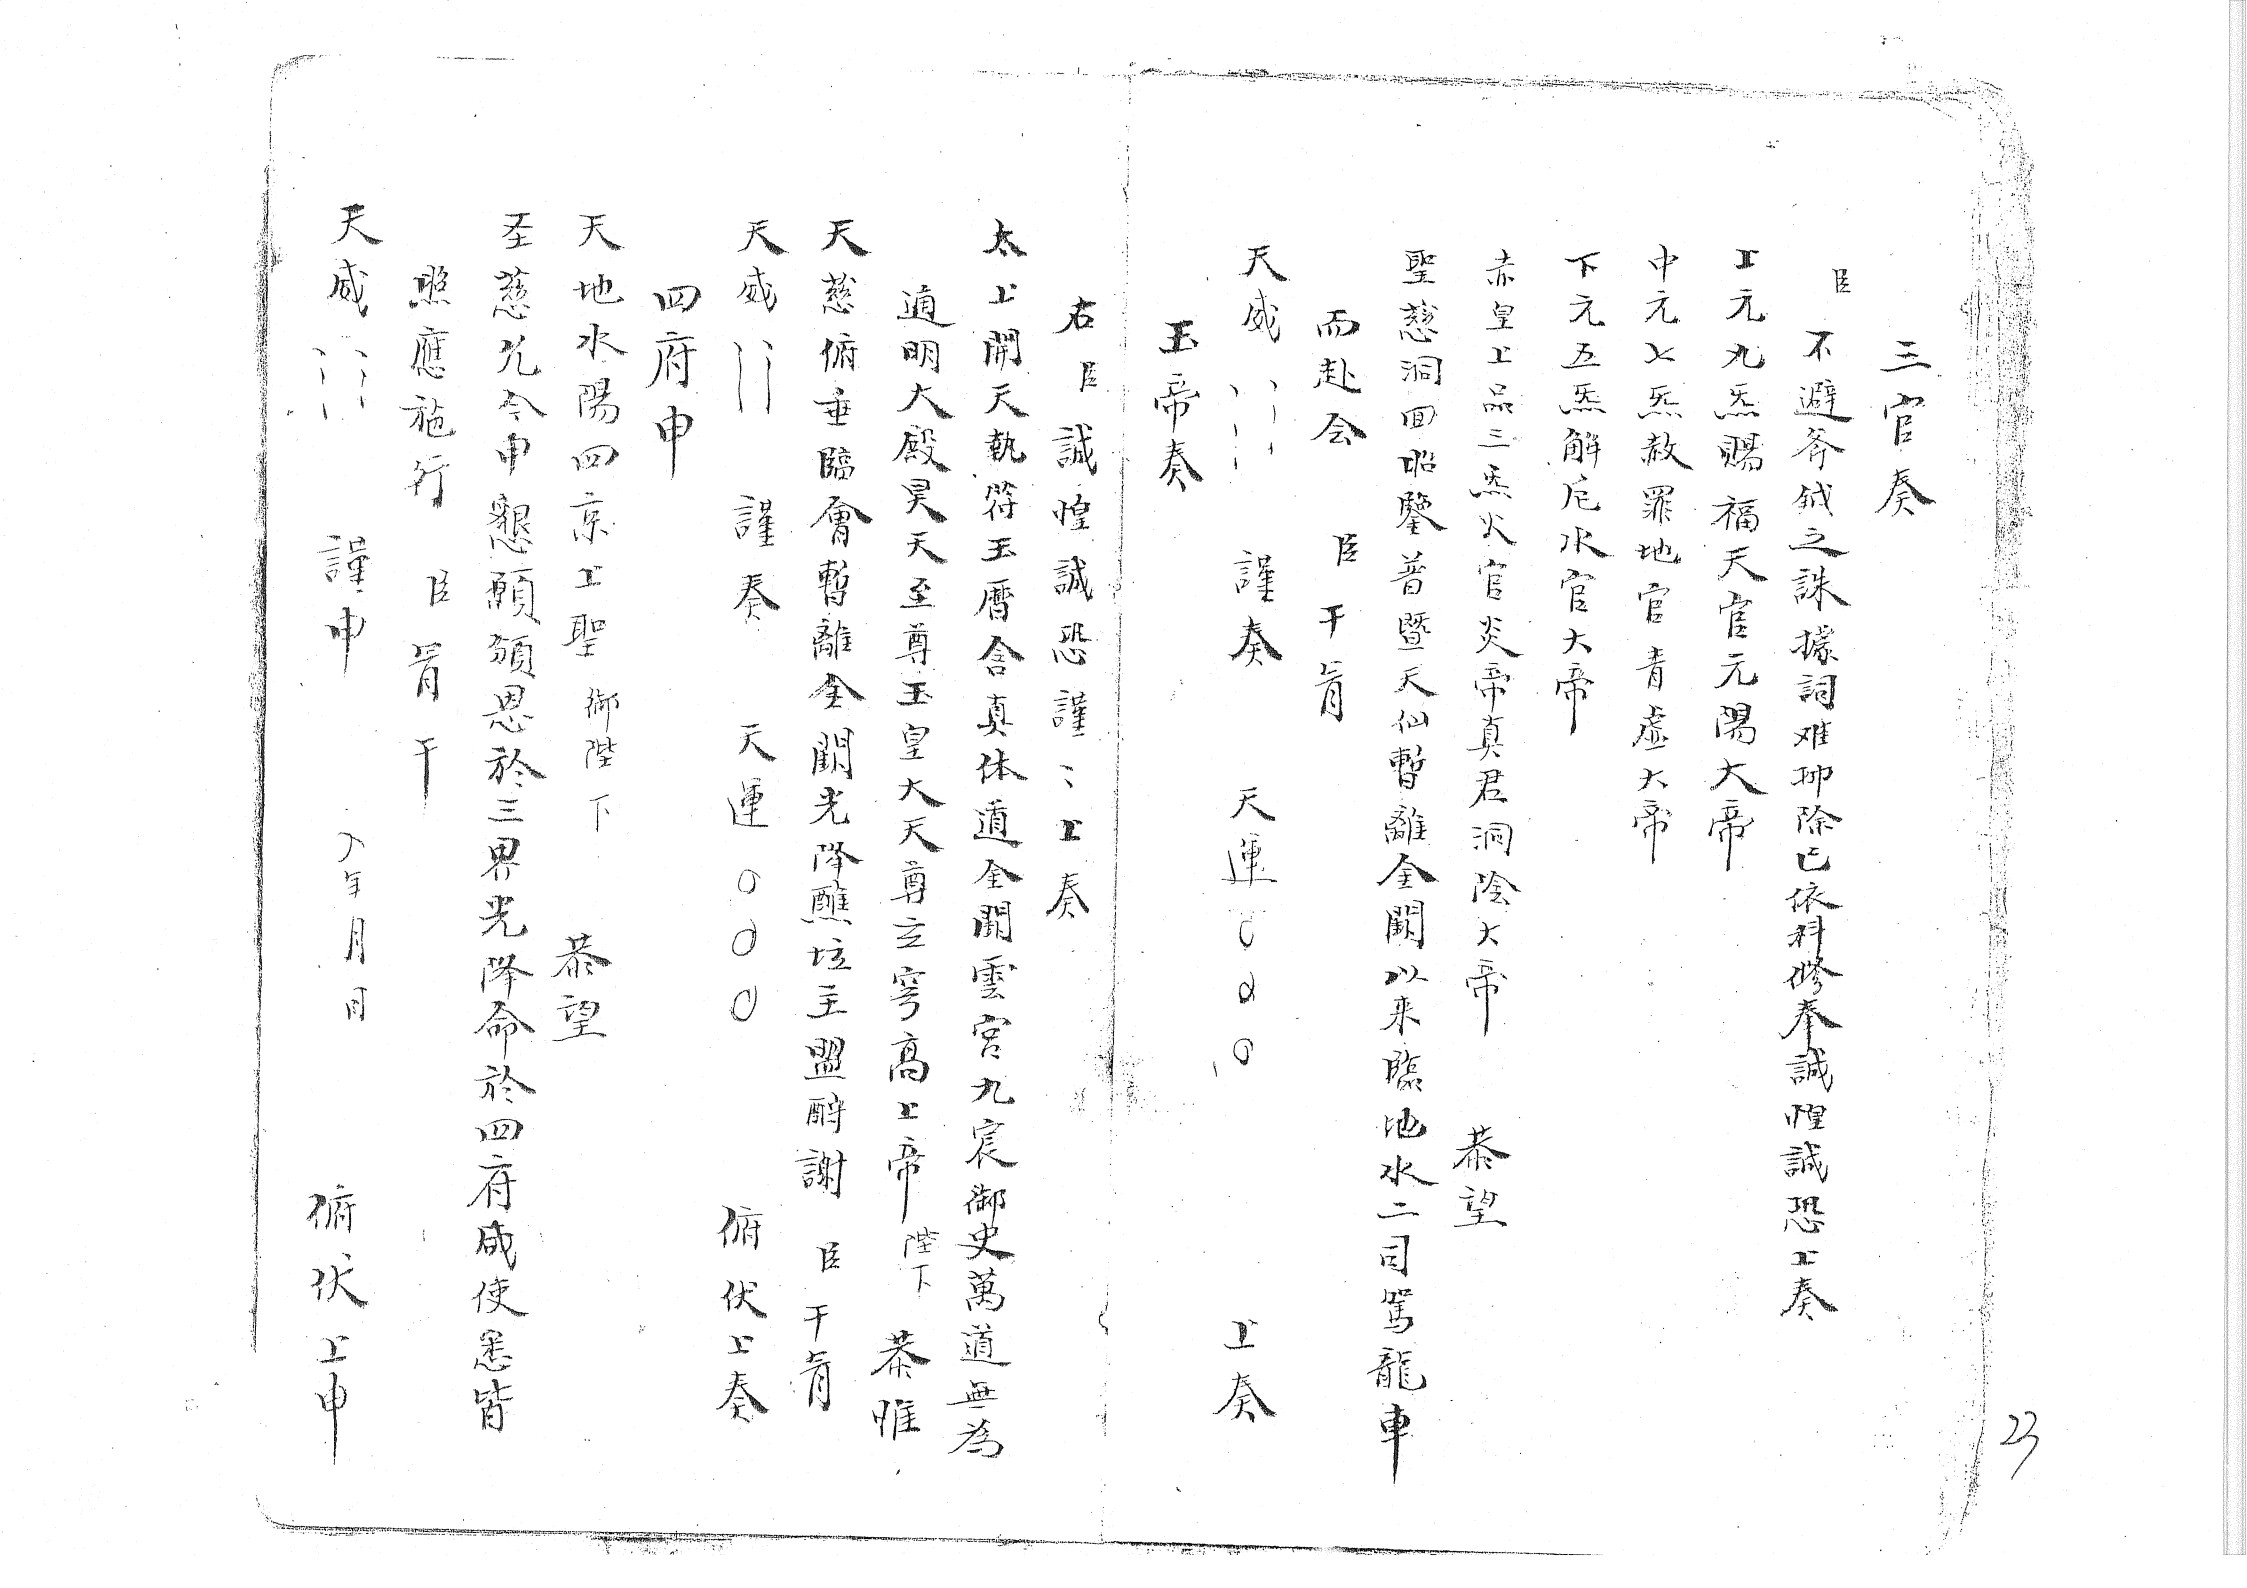 三官奏
臣不避斧鉞之誅據詞难抑除已依科修奉誠惶誠恐上奏
上元九炁賜福天官元陽大帝
中元七炁赦罪地官青虛大帝
下元五炁解厄水官大帝
赤皇上品三炁火官炎帝真君洞陰大帝 恭望
聖慈洞回昭鑒普暨天仙暫離金闕以来臨地水二司駕龍車
而赴会 臣干冐
天威 謹奏 天運 上奏
玉帝奏
右臣誠惶誠恐謹〻上奏
太上開天執符玉曆含真体道金闕雲宮九宸御史萬道無為
通明大殿昊天至尊玉皇大天尊玄穹高上帝 陛下 恭惟
天慈俯垂臨會暫離金闕光降醮坛主盟酧謝 臣干冐
天威 謹奏 天運 俯伏上奏
四府申
天地水陽四京上聖 御陛下 恭望
圣慈允今申懇願頒恩於三界光降命於四府咸使悉皆
照應施行 臣冐干
天威 謹申 年月日 俯伏上申
23